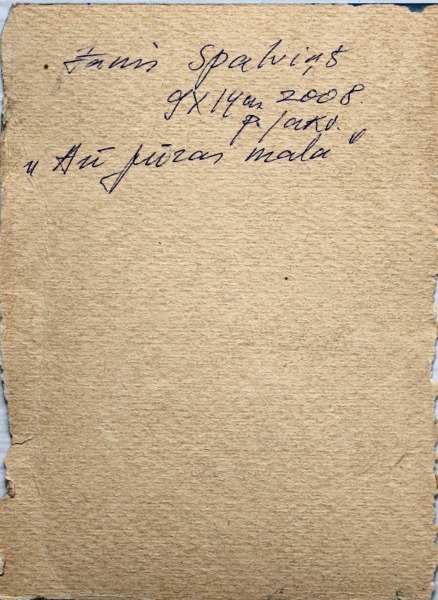 Janis Spalviņš
9X14cm 2008
p. jakv.
"Aū jūras mala"